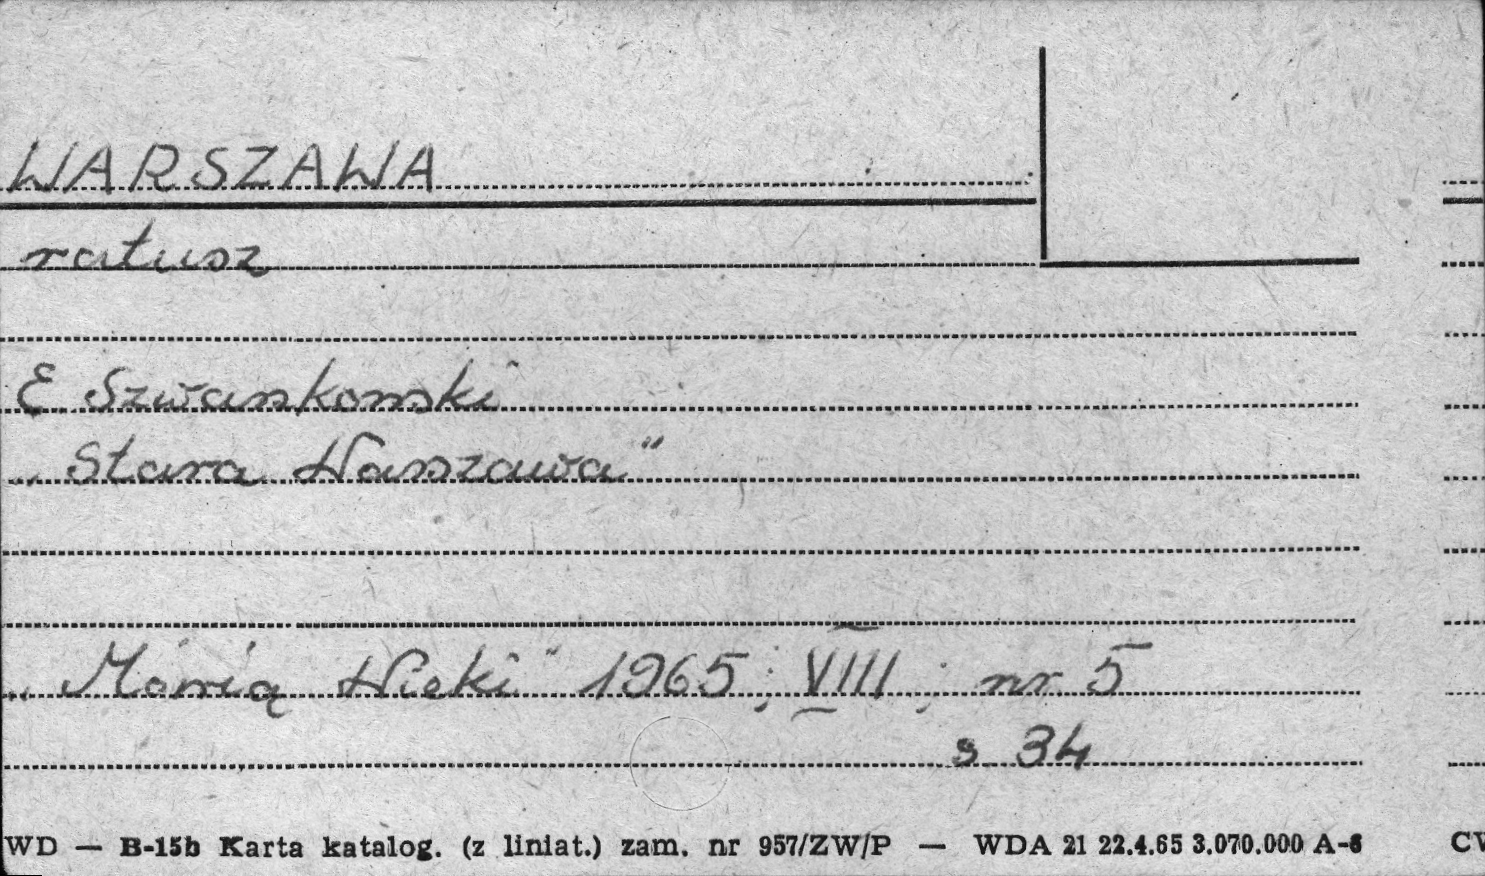 WARSZAWA
ratusz
E. Szwankowski
„Stara Warszawa"
„Mówią Wieki" 1965; VIII; nr 5
s 34
WD — B-15b Karta katalog. (z liniat.) zam. nr 957/ZW/P — WDA 21 22.4.65 3.070.000 A-6